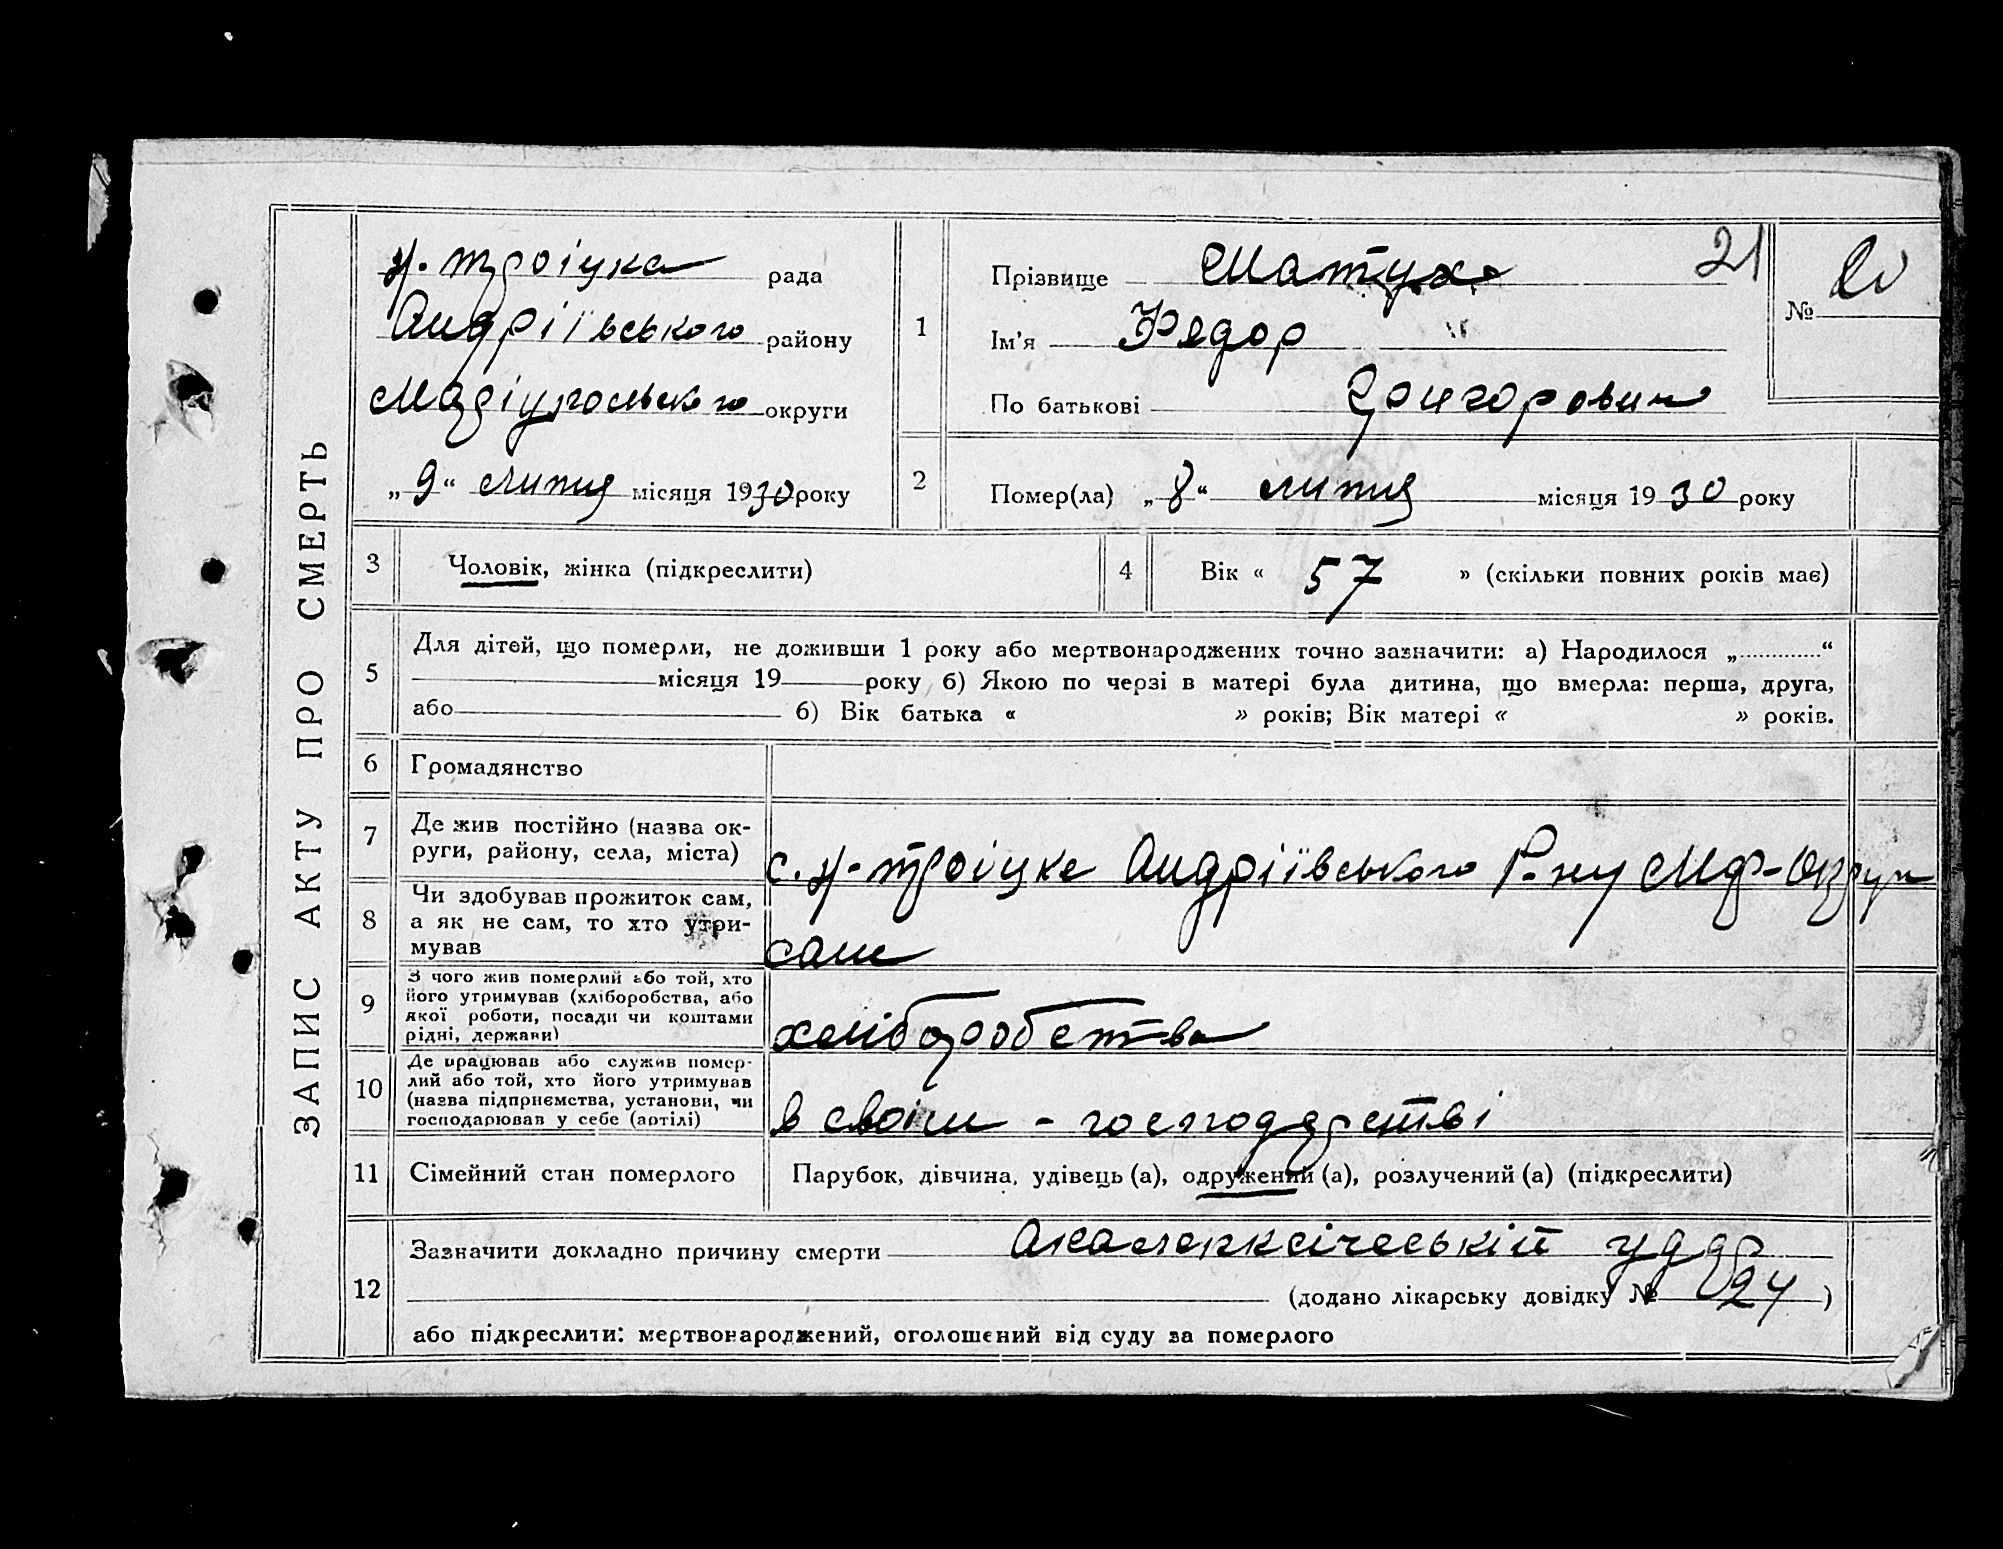 ЗАПИС АКТУ ПРО СМЕРТЬ
Н. Троіцка рада
Андріївського району
Маріупольського округи
„9“ липня місяця 1930 року
1
Прізвище Матуха
21
№ 20
Ім'я Федор
По батькові Григорович
2
Помер(ла) „8“ липня місяця 1930 року
3
Чоловік, жінка (підкреслити)
4
Вік « 57 » (скільки повних років має)
5
Для дітей, що померли, не доживши 1 року або мертвонароджених точно зазначити: а) Народилося „ “
місяця 19 року б) Якою по черзі в матері була дитина, що вмерла: перша, друга,
або б) Вік батька « » років; Вік матері « » років.
6
Громадянство
7
Де жив постійно (назва ок-
руги, району, села, міста)
с. Н-Троіцке Андріївського Р-ну МФ-Округи
8
Чи здобував прожиток сам,
а як не сам, то хто утри-
мував
сам
9
З чого жив померлий або той, хто
його утримував (хліборобства, або
якої роботи, посади чи коштами
рідні, держави)
хліборобства
10
Де працював або служив помер-
лий або той, хто його утримував
(назва підприємства, установи, чи
господарював у себе (артілі)
в своім - господарстві
11
Сімейний стан померлого
Парубок, дівчина, удівець (а), одружений (а), розлучений (а) (підкреслити)
12
Зазначити докладно причину смерти удар
(додано лікарську довідку № 24 )
або підкреслити: мертвонароджений, оголошений від суду за померлого